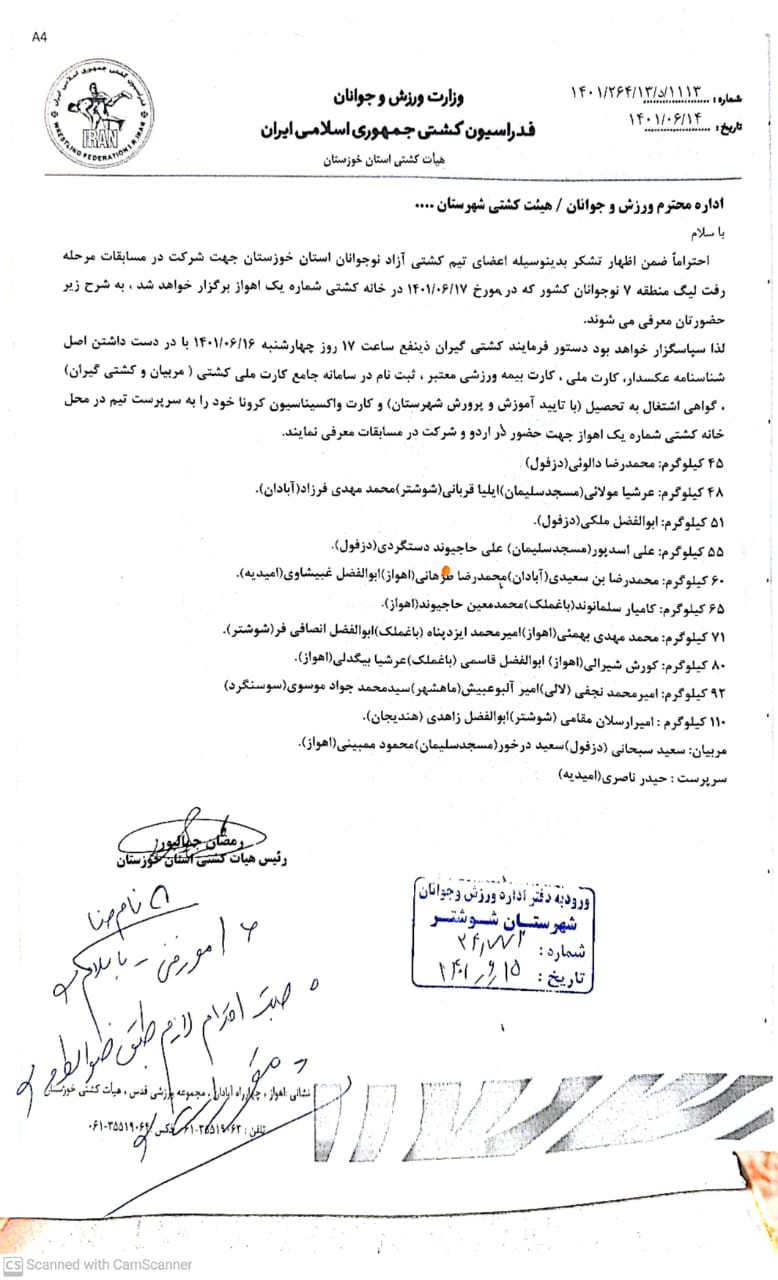 A4
شماره: ۱۴۰۱/۲۶۴/۱۳/د/۱۱۱۳
تاریخ: ۱۴۰۱/۰۶/۱۴
وزارت ورزش و جوانان
فدراسیون کشتی جمهوری اسلامی ایران
هیأت کشتی استان خوزستان
فدراسیون کشتی جمهوری اسلامی ایران
IRAN
WRESTLING FEDERATION I.R.IRAN
اداره محترم ورزش و جوانان / هیئت کشتی شهرستان ....
با سلام
احتراماً ضمن اظهار تشکر بدینوسیله اعضای تیم کشتی آزاد نوجوانان استان خوزستان جهت شرکت در مسابقات مرحله
رفت لیگ منطقه ۷ نوجوانان کشور که در مورخ ۱۴۰۱/۰۶/۱۷ در خانه کشتی شماره یک اهواز برگزار خواهد شد ، به شرح زیر
حضورتان معرفی می شوند.
لذا سپاسگزار خواهد بود دستور فرمایند کشتی گیران ذینفع ساعت ۱۷ روز چهارشنبه ۱۴۰۱/۰۶/۱۶ با در دست داشتن اصل
شناسنامه عکسدار، کارت ملی ، کارت بیمه ورزشی معتبر ، ثبت نام در سامانه جامع کارت ملی کشتی ( مربیان و کشتی گیران)
، گواهی اشتغال به تحصیل (با تایید آموزش و پرورش شهرستان) و کارت واکسیناسیون کرونا خود را به سرپرست تیم در محل
خانه کشتی شماره یک اهواز جهت حضور در اردو و شرکت در مسابقات معرفی نمایند.
۴۵ کیلوگرم: محمدرضا دالوئی(دزفول)
۴۸ کیلوگرم: عرشیا مولائی(مسجدسلیمان)ایلیا قربانی(شوشتر)محمد مهدی فرزاد(آبادان).
۵۱ کیلوگرم: ابوالفضل ملکی(دزفول).
۵۵ کیلوگرم: علی اسدپور(مسجدسلیمان) علی حاجیوند دستگردی(دزفول).
۶۰ کیلوگرم: محمدرضا بن سعیدی(آبادان)محمدرضا طرهانی(اهواز)ابوالفضل غبیشاوی(امیدیه).
۶۵ کیلوگرم: کامیار سلمانوند(باغملک)محمدمعین حاجیوند(اهواز).
۷۱ کیلوگرم: محمد مهدی بهمئی(اهواز)امیرمحمد ایزدپناه (باغملک)ابوالفضل انصافی فر(شوشتر).
۸۰ کیلوگرم: کورش شیرالی(اهواز) ابوالفضل قاسمی (باغملک)عرشیا بیگدلی(اهواز).
۹۲ کیلوگرم: امیرمحمد نجفی (لالی)امیر آلبوعبیش(ماهشهر)سیدمحمد جواد موسوی(سوسنگرد)
۱۱۰ کیلوگرم : امیرارسلان مقامی (شوشتر)ابوالفضل زاهدی (هندیجان).
مربیان: سعید سبحانی (دزفول)سعید درخور(مسجدسلیمان)محمود ممبینی(اهواز).
سرپرست : حیدر ناصری(امیدیه)
رمضان جمالپور
رئیس هیات کشتی استان خوزستان
ورود به دفتر اداره ورزش و جوانان
شهرستان شوشتر
شماره :
تاریخ :
نام خدا
با سلام
اقدام لازم طبق ضوابط
نشانی :اهواز ، چهارراه آبادان ، مجموعه ورزشی قدس ، هیأت کشتی خوزستان
تلفن : ۳۵۵۱۹۰۶۲-۰۶۱ فکس :۳۵۵۱۹۰۶۴-۰۶۱
CS Scanned with CamScanner